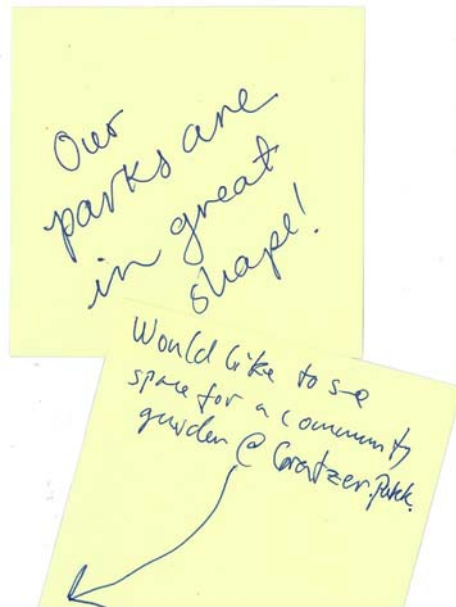 Our
parks are
in great
shape!
Would like to see
space for a community
garden @ Gratzer Park.